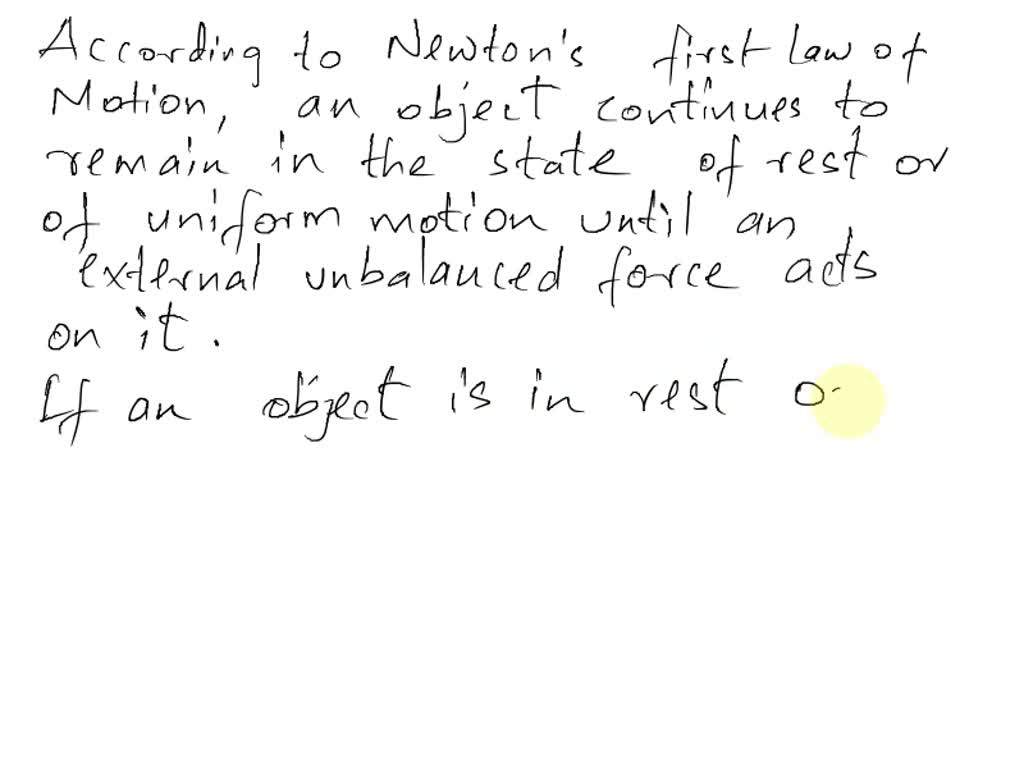 According to Newton's first law of
Motion, an object continues to
remain in the state of rest or
of uniform motion until an
external unbalanced force acts
on it.
If an object is in rest o